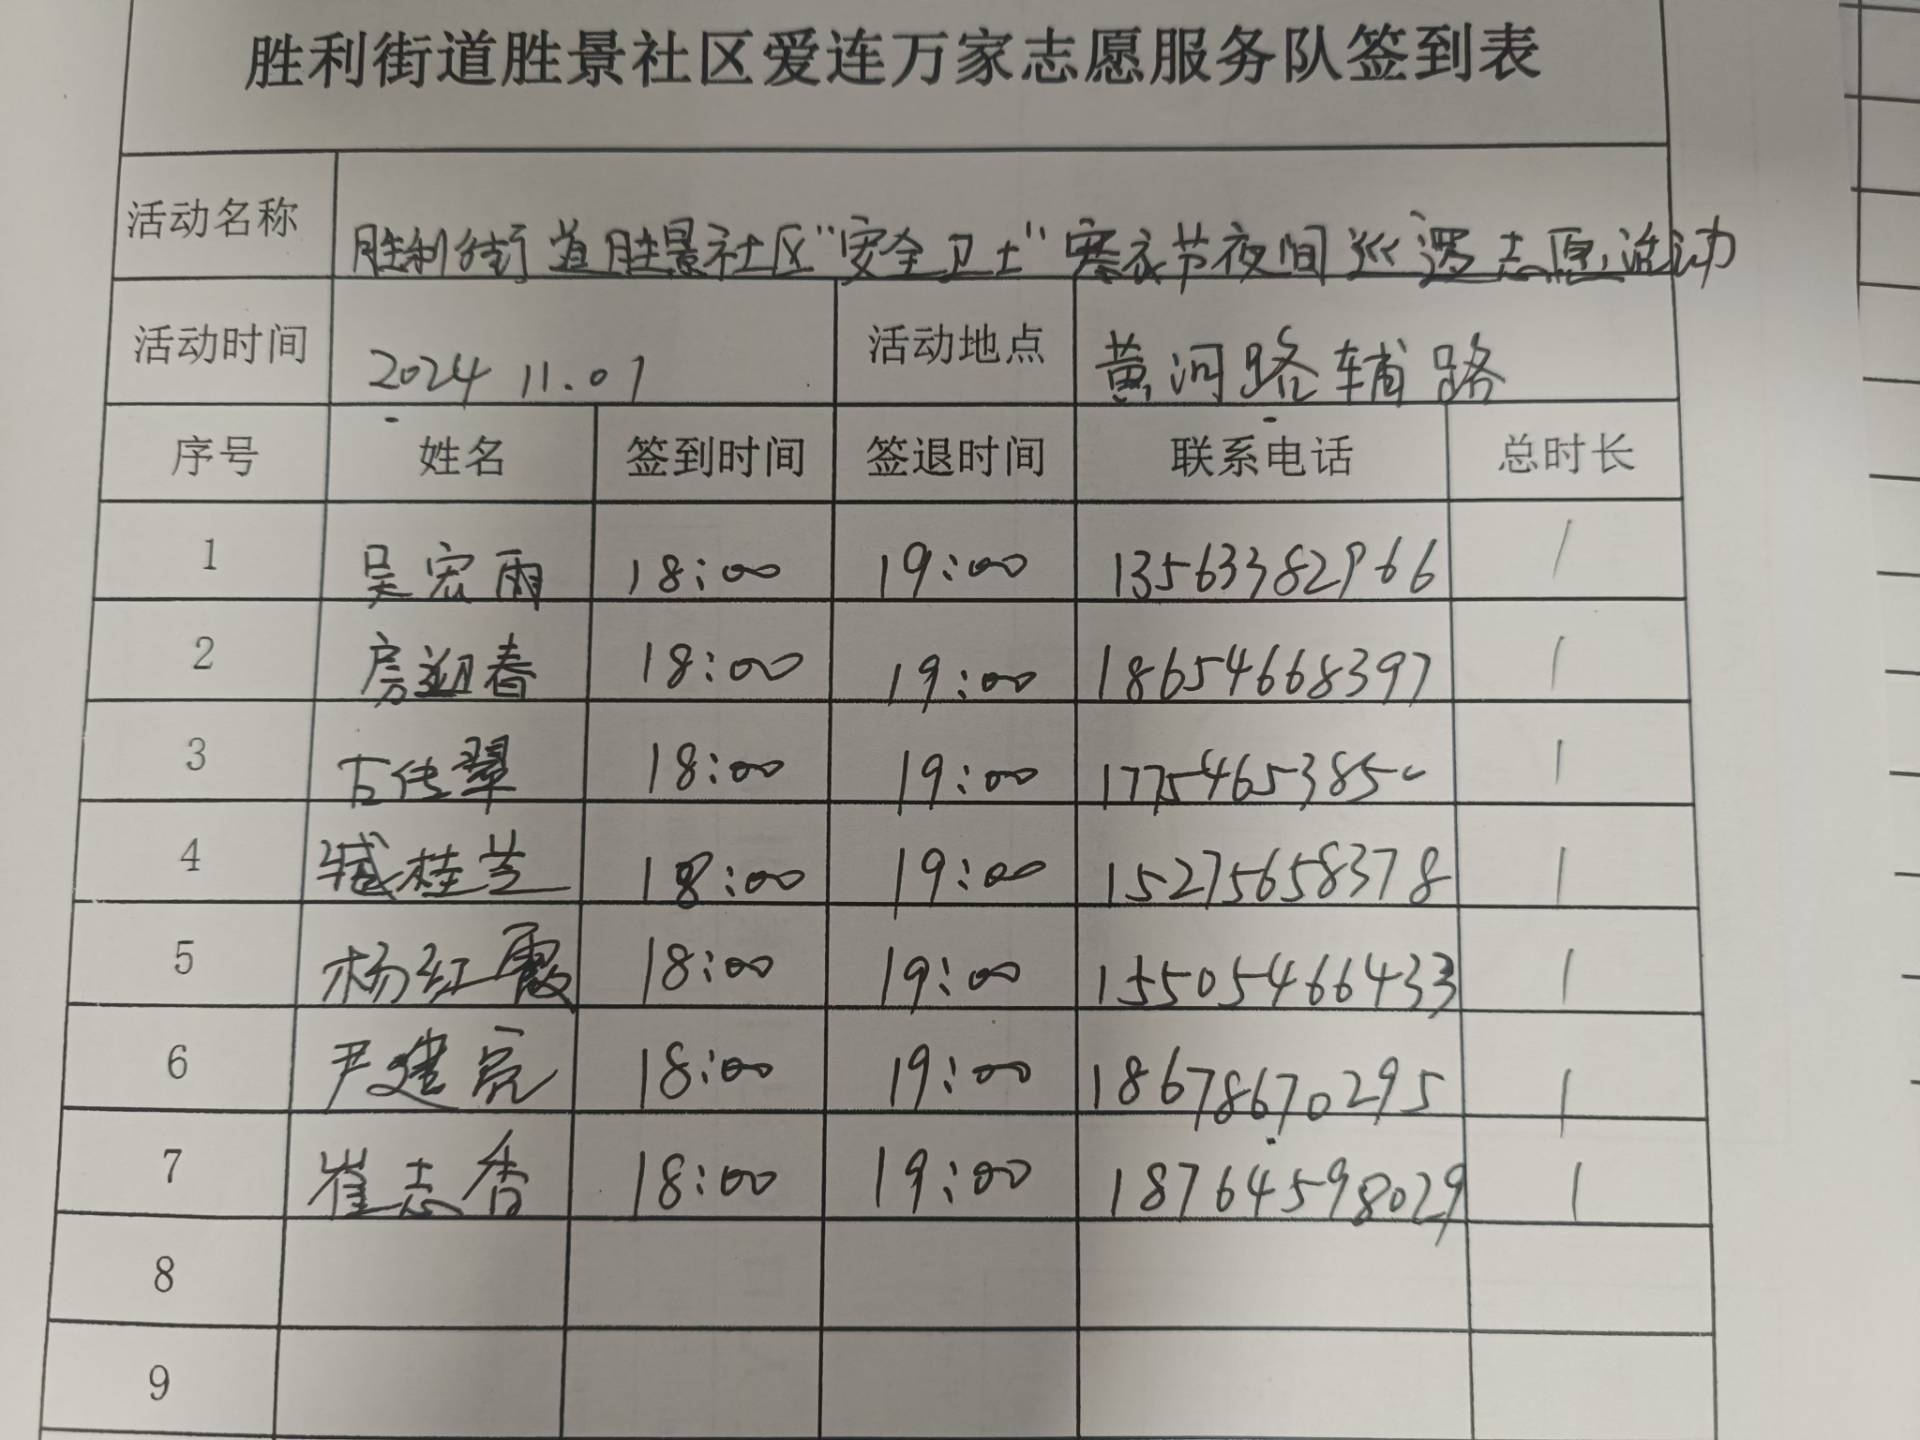 胜利街道胜景社区爱连万家志愿服务队签到表
活动名称 胜利街道胜景社区"安全卫士"寒衣节夜间巡逻志愿活动
活动时间 2024.11.01 活动地点 黄河路辅路
序号 姓名 签到时间 签退时间 联系电话 总时长
1 吴宏雨 18:00 19:00 13563382966 1
2 房迎春 18:00 19:00 18654668397 1
3 古传翠 18:00 19:00 17754653850 1
4 臧桂兰 18:00 19:00 15275658378 1
5 杨红霞 18:00 19:00 15505466433 1
6 尹建亮 18:00 19:00 18678670295 1
7 崔志香 18:00 19:00 18764598029 1
8
9